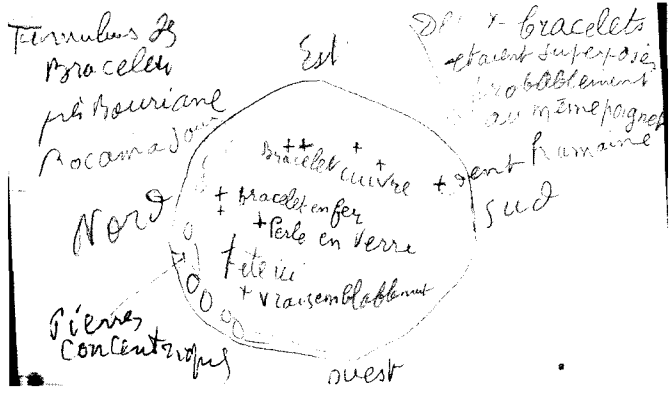 Tumulus des
Bracelets
près Bouriane
Rocamadour
Est
Deux bracelets
étaient superposés
probablement
au même poignet
Bracelet cuivre
dent humaine
Nord
Bracelet en fer
Sud
Perle en verre
Tête ici
vraisemblablement
Pierres
concentriques
ouest